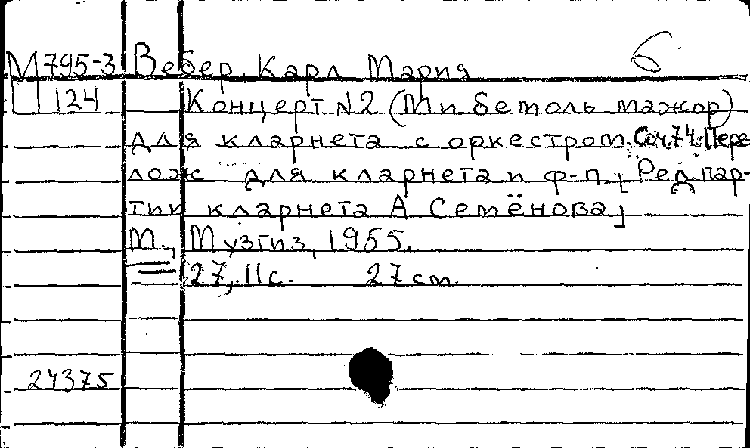 М795-3 Вебер, Карл Мария б
Ц 124 Концерт №2 (Ми бемоль мажор)
для кларнета с оркестром. Соч.74. Пере-
лож. для кларнета и ф-п. [Ред. пар-
тии кларнета А. Семёнова]
М., Музгиз, 1955.
27, 11с. 27 cm.
24375